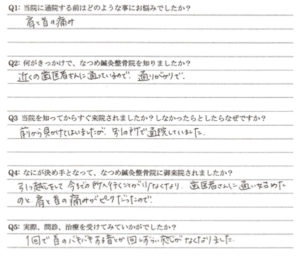 Q1: 当院に通院する前はどのような事にお悩みでしたか？
肩と首の痛み
Q2: 何がきっかけで、なつめ鍼灸整骨院を知りましたか？
近くの歯医者さんに通っているので、通りがかりで。
Q3 当院を知ってからすぐ来院されましたか？しなかったとしたらなぜですか？
前から見かけてはいましたが、別の所で通院していました。
Q4: なにが決め手となって、なつめ鍼灸整骨院に御来院されましたか？
引っ越しをして今までの所へ行くことが少なくなり、歯医者さんに通い始めた
のと肩と首の痛みがピークだったので。
Q5: 実際、問診、治療を受けてみていかがでしたか？
1回で首のバキバキする音とか回しづらい感じがなくなりました。